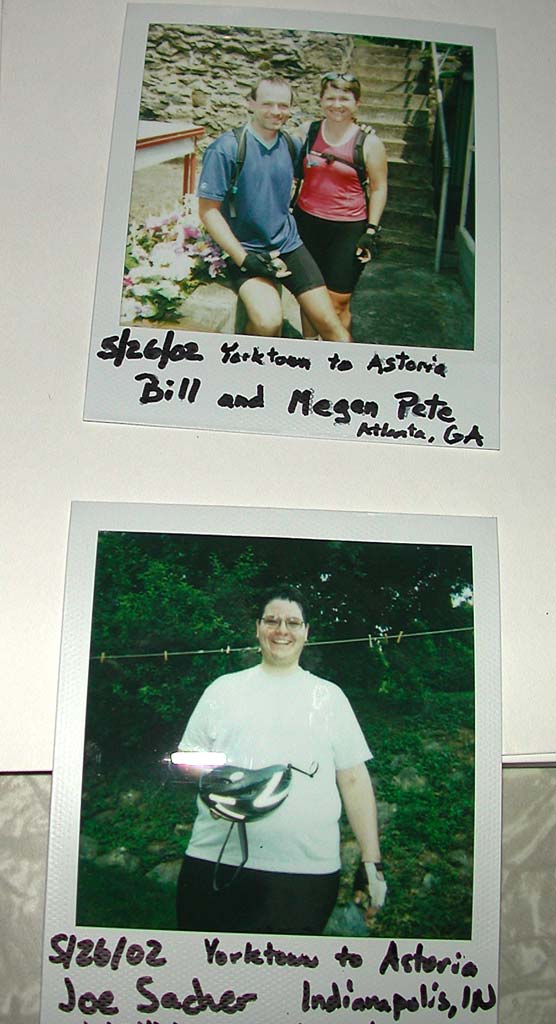 5/26/02 Yorktown to Astoria
Bill and Megan Pete
Atlanta, GA
5/26/02 Yorktown to Astoria
Joe Sacher Indianapolis, IN